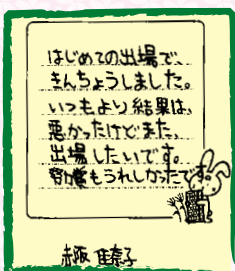 はじめての出場で、
きんちょうしました。
いつもより結果は、
悪かったけどまた、
出場したいです。
もうれしかったです。
赤阪 佳奈子